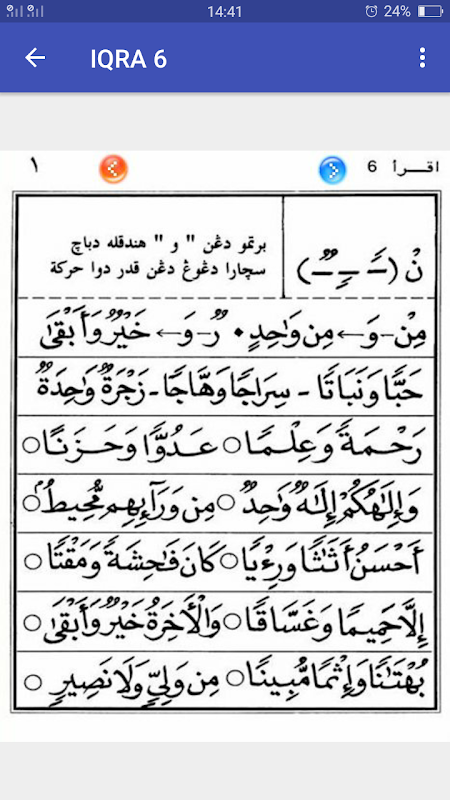 14:41 24%
IQRA 6
اقــرأ 6 ١
نْ (ــًـ ــٍـ ــٌـ) برتمو دڠن " و " هندقله دباچ
سچارا دڠوڠ دڠن قدر دوا حركة
مِنْ - وَ ← مِن وَٰحِدٍ • رٌ - وَ ← خَيْرٌ وَأَبْقَىٰ
حَبًّا وَنَبَاتًا - سِرَاجًا وَهَّاجًا - زَجْرَةٌ وَٰحِدَةٌ
رَحْمَةً وَعِلْمًا ○ عَدُوًّا وَحَزَنًا ○
وَإِلَٰهُكُمْ إِلَٰهٌ وَٰحِدٌ ○ مِن وَرَآءِهِم مُّحِيطٌ ○
أَحْسَنُ أَثَٰثًا وَرِءْيًا ○ كَانَ فَٰحِشَةً وَمَقْتًا ○
إِلَّا حَمِيمًا وَغَسَّاقًا ○ وَالْأَخِرَةُ خَيْرٌ وَأَبْقَىٰ ○
بُهْتَٰنًا وَإِثْمًا مُّبِينًا ○ مِن وَلِيٍّ وَلَا نَصِيرٍ ○